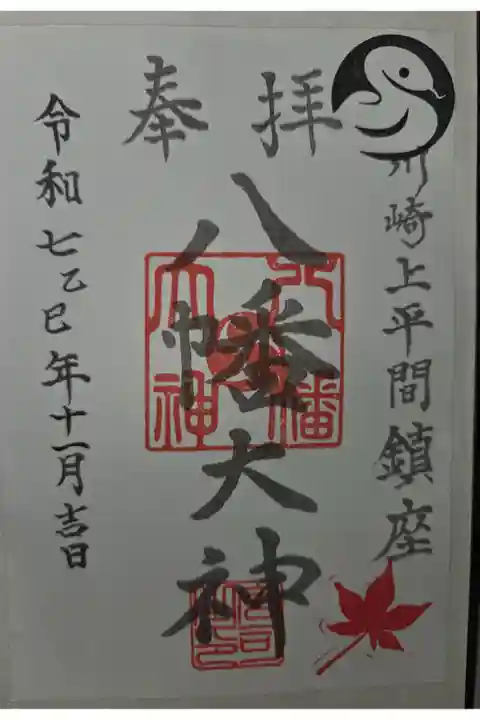 奉拝
川崎上平間鎮座
八幡大神
八幡大神
令和七乙巳年十一月吉日